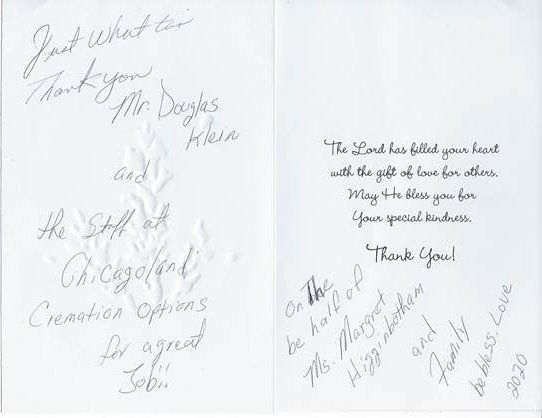 Just What to
Thank you
Mr. Douglas
Klein
and
the Staff at
Chicagoland
Cremation Options
for a great
Job!!
The Lord has filled your heart
with the gift of love for others.
May He bless you for
Your special kindness.
Thank You!
On The
be half of
Ms. Margret
Higginbotham
and
Family
be bless. Love
2020